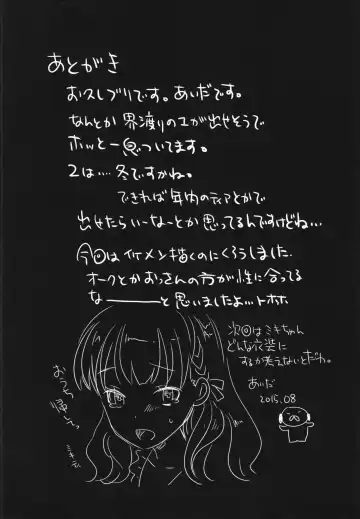 あとがき
お久しブリです。あいだです。
なんとか界渡りの工が出せそうで
ホッと一息ついてます。
2は‥‥冬ですかね。
できれば年内のティアとかで
出せたらいーなーとか思ってるんですけどね…
今回はイケメン描くのにくろうしました。
オークとかおっさんの方が性に合ってる
な―――と思いましたよ…トホホ
次回はミキちゃん
どんな衣装に
するか考えないとだわ。
あいだ
2015.08
おうち
帰して
ミキティ